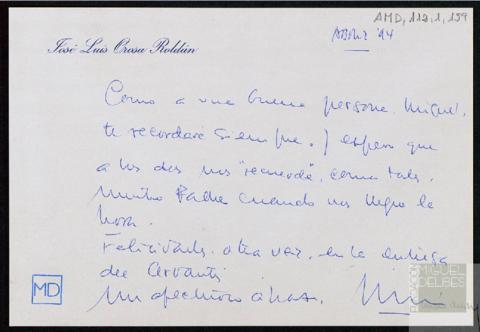 AMD,112,1,159
José Luis Orosa Roldán
ABRIL '94
Como a una buena persona, Miguel,
te recordaré siempre. Y espero que
a los dos nos "recuerde", como tales,
nuestro Padre cuando nos llegue la
hora.
Felicidades, otra vez, en la entrega
del Cervantes
Un afectuoso abrazo,
MD
MIGUEL
DELIBES